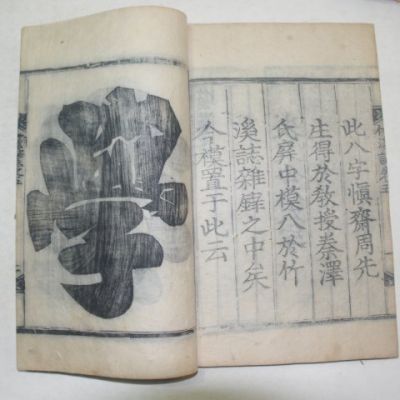 此八字愼齋周先
生得於敎授秦澤
氏屛中模入於竹
溪誌雜之中矣
今模置于此云
學